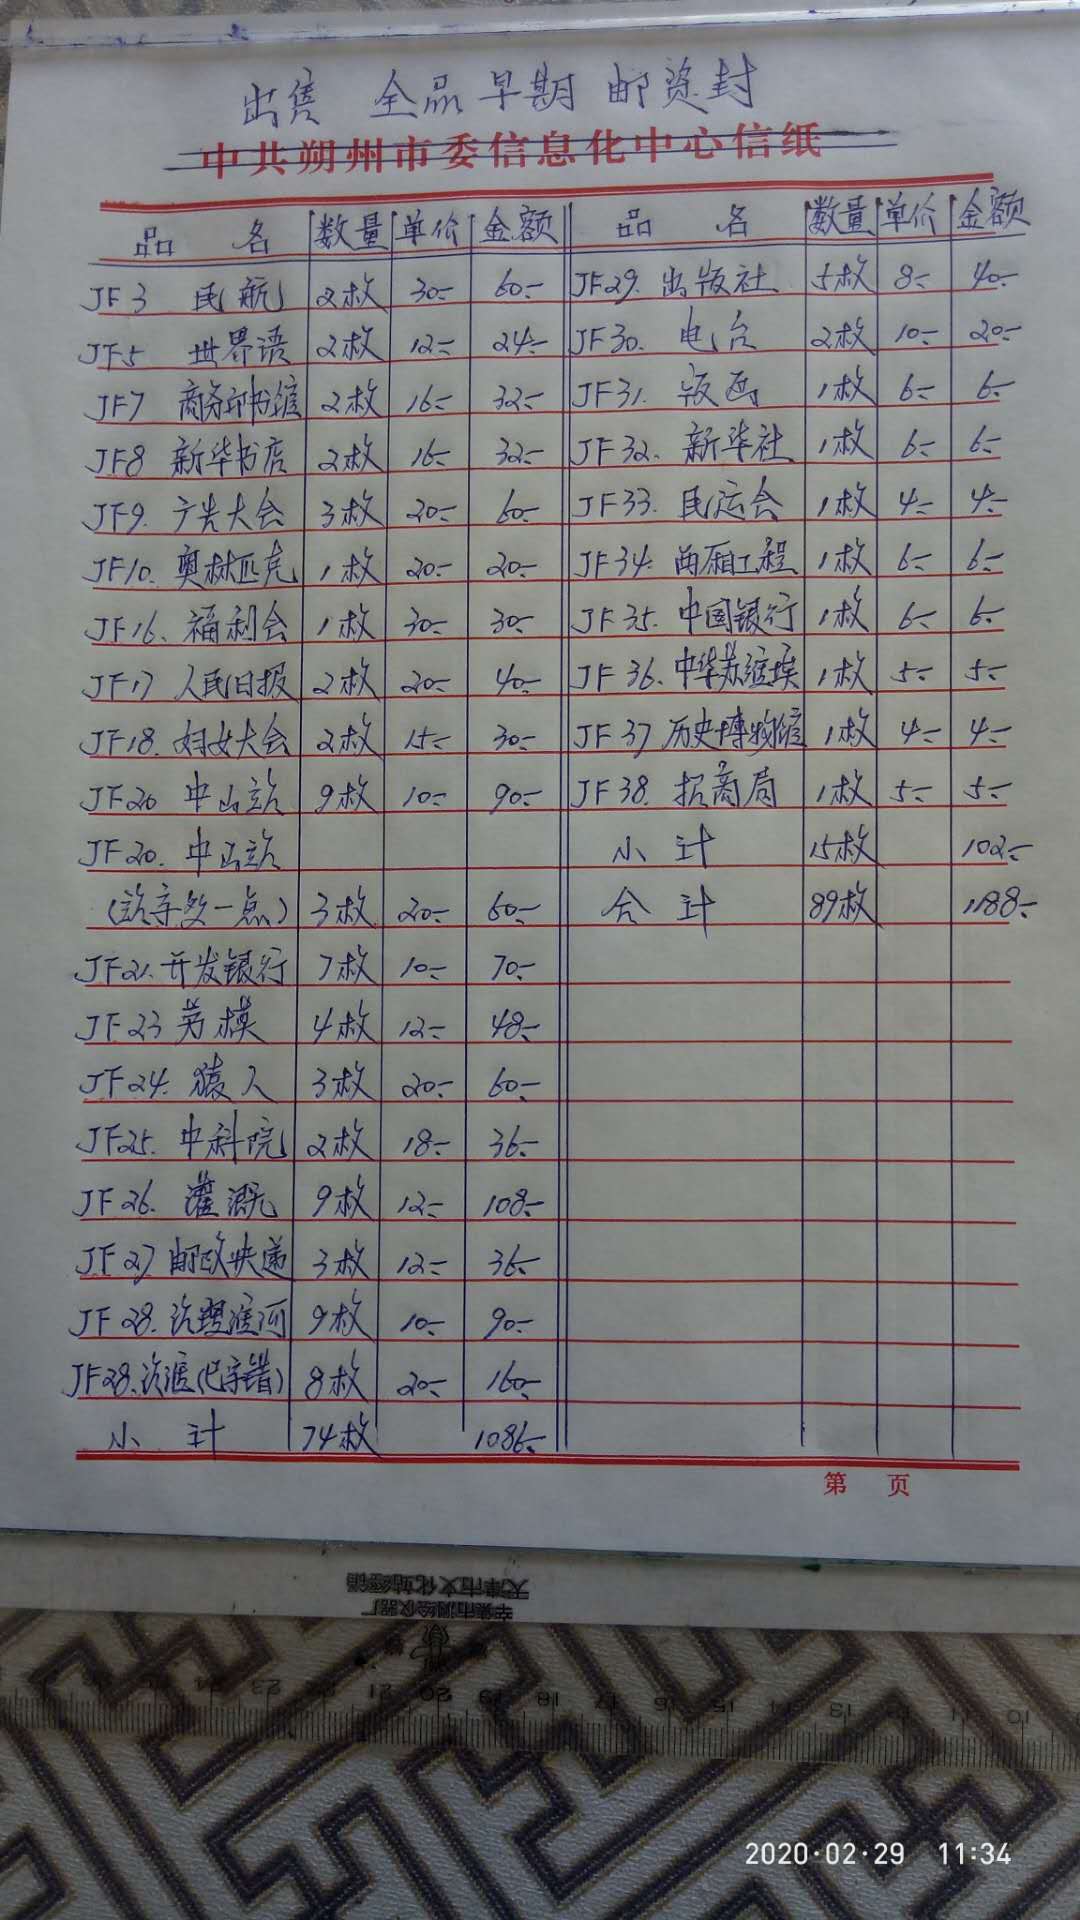 出售 全品早期邮资封
中共朔州市委信息化中心信纸
品 名 数量 单价 金额 品 名 数量 单价 金额
JF3 民航 2枚 30- 60- JF29. 出版社 5枚 8- 40-
JF5 世界语 2枚 12- 24- JF30. 电台 2枚 10- 20-
JF7 商务印书馆 2枚 16- 32- JF31. 版画 1枚 6- 6-
JF8 新华书店 2枚 16- 32- JF32. 新华社 1枚 6- 6-
JF9. 广告大会 3枚 20- 60- JF33. 民运会 1枚 4- 4-
JF10. 奥林匹克 1枚 20- 20- JF34. 两厢工程 1枚 6- 6-
JF16. 福利会 1枚 30- 30- JF35. 中国银行 1枚 6- 6-
JF17 人民日报 2枚 20- 40- JF36. 中华苏维埃 1枚 5- 5-
JF18. 妇女大会 2枚 15- 30- JF37 历史博物馆 1枚 4- 4-
JF20 中山站 9枚 10- 90- JF38. 招商局 1枚 5- 5-
JF20. 中山站 小 计 15枚 102-
(站字多一点) 3枚 20- 60- 合 计 89枚 1188-
JF21. 开发银行 7枚 10- 70-
JF23 劳模 4枚 12- 48-
JF24. 猿人 3枚 20- 60-
JF25. 中科院 2枚 18- 36-
JF26. 灌溉 9枚 12- 108-
JF27 邮政快递 3枚 12- 36-
JF28. 治理淮河 9枚 10- 90-
JF28. 治淮(巴字错) 8枚 20- 160-
小 计 74枚 1086-
第 页
天津市文化站经销
辛集市测绘仪器厂
23 21 20 19 18 17 16 15 14 13 12 11 10
2020·02·29 11:34